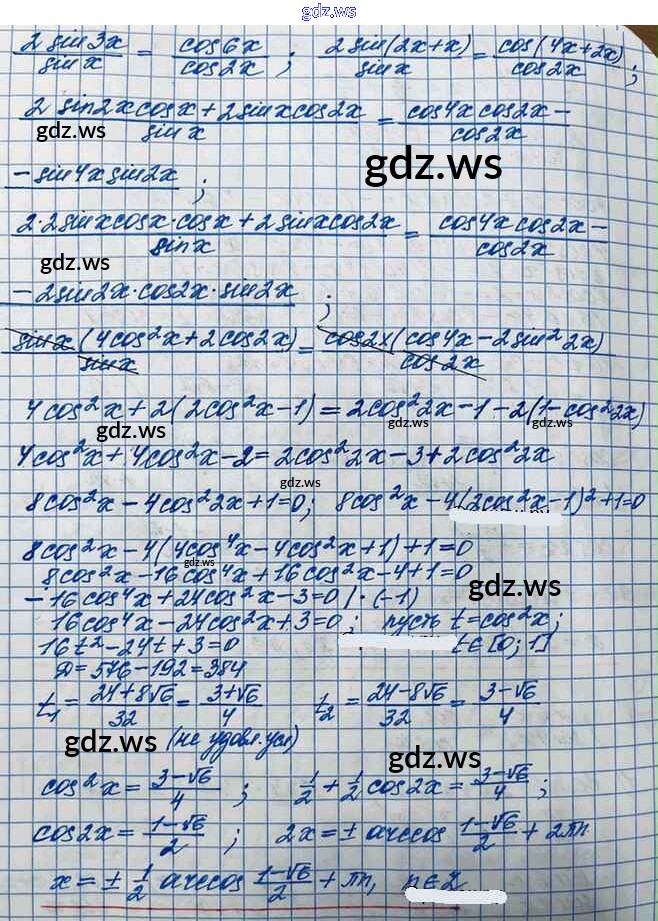 gdz.ws
2 sin3x / sin x = cos6x / cos2x ; 2 sin(2x+x) / sin x = cos(4x+2x) / cos2x ;
2 sin2x cosx + 2 sin x cos2x / sin x = cos4x cos2x −
gdz.ws
/ cos2x
gdz.ws
− sin4x sin2x ;
2·2sinx cosx·cosx + 2 sinx cos2x / sinx = cos4x cos2x − / cos2x
gdz.ws
− 2sin2x·cos2x·sin2x ;
sinx (4cos²x + 2cos2x) / sinx = cos2x (cos4x − 2sin²2x) / cos2x
4cos²x + 2(2cos²x − 1) = 2cos²2x − 1 − 2(1 − cos²2x)
gdz.ws gdz.ws gdz.ws
4cos²x + 4cos²x − 2 = 2cos²2x − 3 + 2cos²2x
gdz.ws
8cos²x − 4cos²2x + 1 = 0; 8cos²x − 4(2cos²x − 1)² + 1 = 0
8cos²x − 4(4cos⁴x − 4cos²x + 1) + 1 = 0
gdz.ws
8cos²x − 16cos⁴x + 16cos²x − 4 + 1 = 0
gdz.ws
− 16cos⁴x + 24cos²x − 3 = 0 | · (−1)
16cos⁴x − 24cos²x + 3 = 0 ; пусть t = cos²x;
16t² − 24t + 3 = 0 t∈[0; 1]
D = 576 − 192 = 384
t₁ = 24+8√6 / 32 = 3+√6 / 4 t₂ = 24−8√6 / 32 = 3−√6 / 4
gdz.ws (не удовл. усл)
gdz.ws
cos²x = 3−√6 / 4 ; 1/2 + 1/2 cos2x = 3−√6 / 4 ;
cos2x = 1−√6 / 2 ; 2x = ± arccos 1−√6 / 2 + 2πn
gdz.ws gdz.ws
x = ± 1/2 arccos 1−√6 / 2 + πn, n∈Z